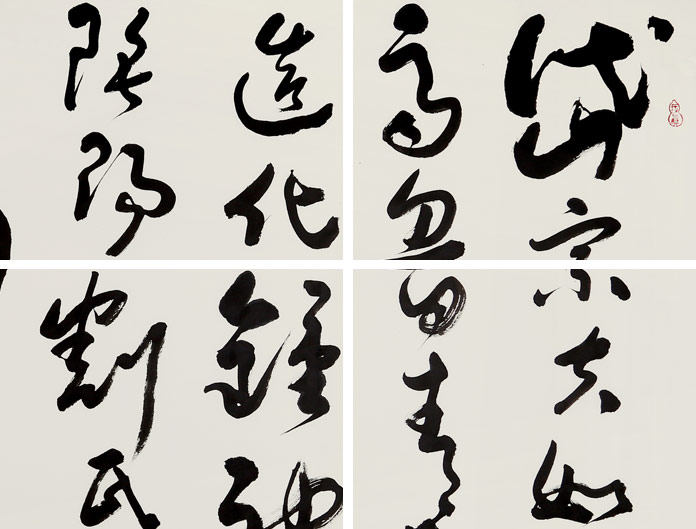 岱宗夫如
齊魯青
造化鍾神
陰陽割昏